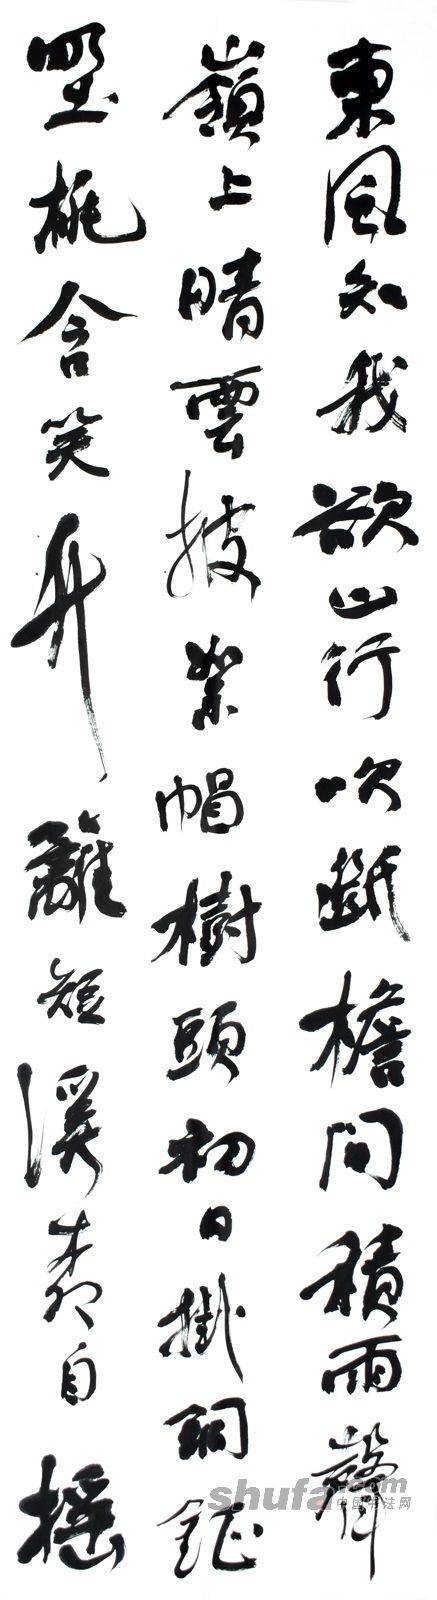 東風知我欲山行吹斷檐間積雨聲
嶺上晴雲披絮帽樹頭初日掛銅鉦
野桃含笑竹離短溪柳自搖
shufa.com
中国书法网